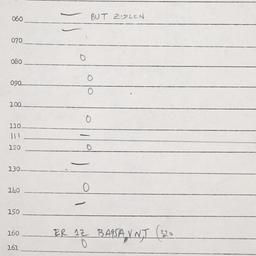 060 — BUT
—
070
080 0
0
090 0
100
110 0
111 —
120 0
130 —
140 0
—
150
160 ER 1Z
161 0